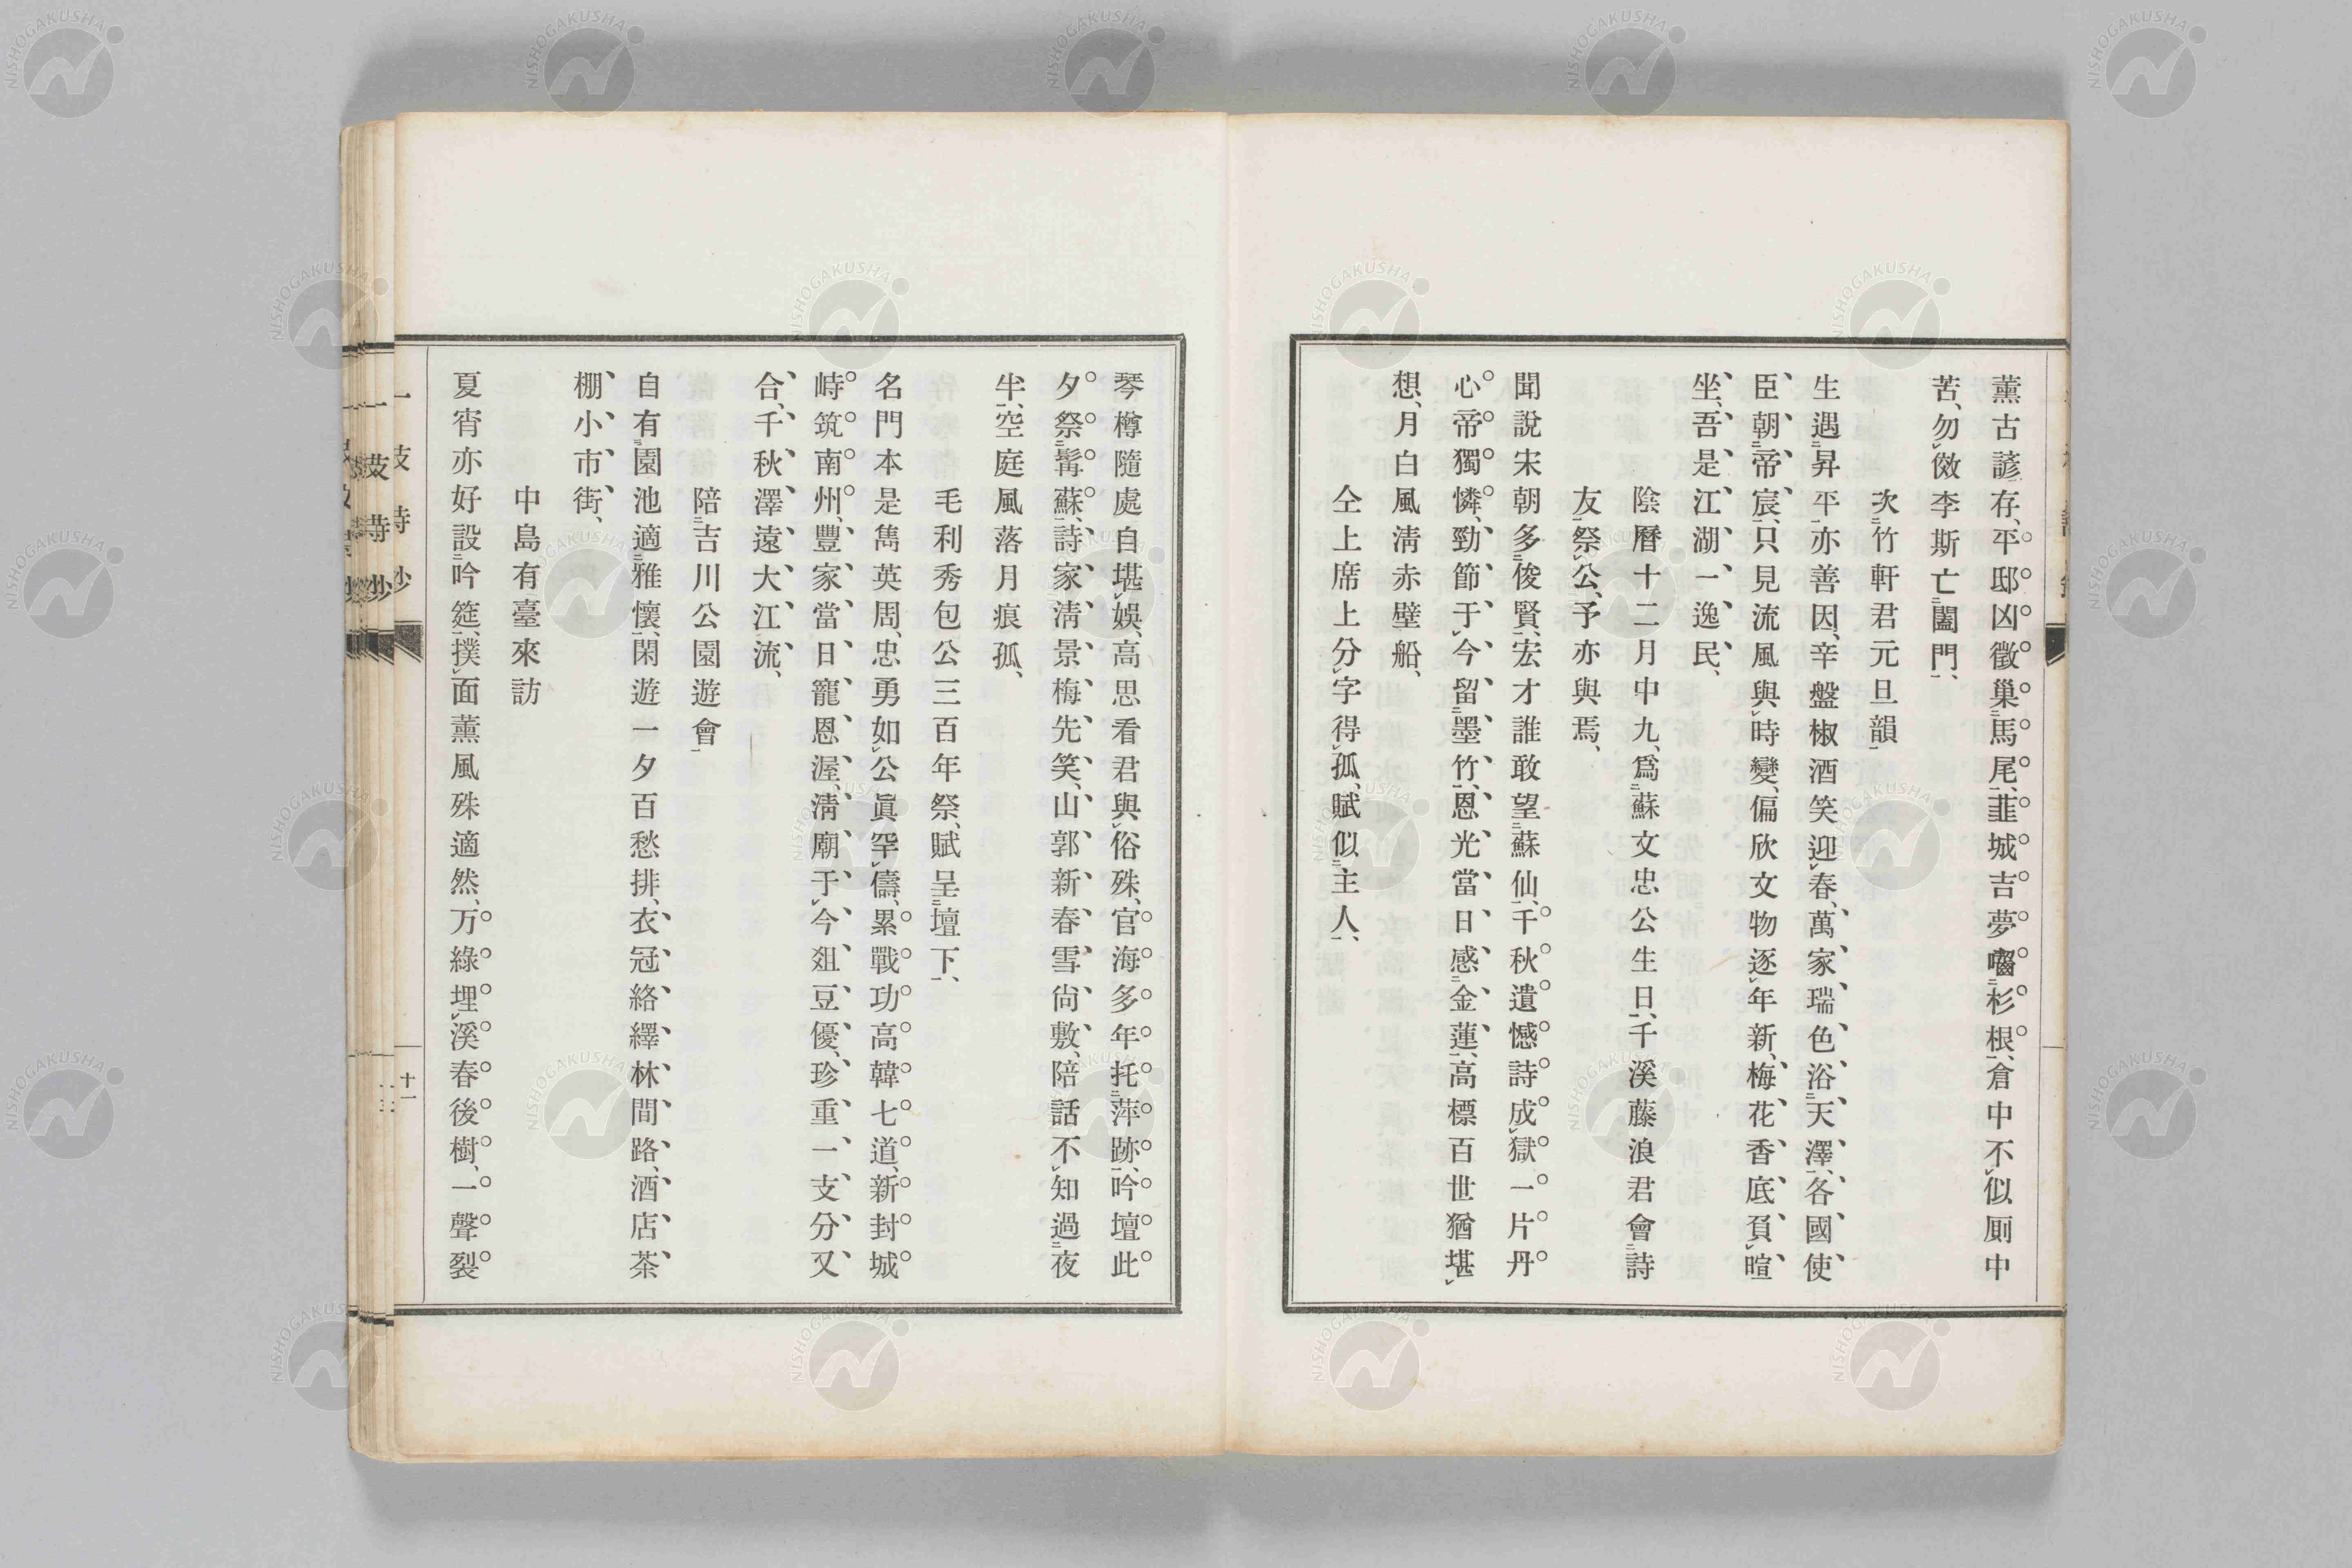 薰古諺存、平邸凶徵巢馬尾、韮城吉夢囓杉根、倉中不似厠中
苦、勿傚李斯亡闔門、
次竹軒君元旦韻
生遇昇平亦善因、辛盤椒酒笑迎春、萬家瑞色浴天澤、各國使
臣朝帝宸、只見流風與時變、偏欣文物逐年新、梅花香底負暄
坐、吾是江湖一逸民、
陰曆十二月中九、爲蘇文忠公生日、千溪藤浪君會詩
友祭公、予亦與焉、
聞說宋朝多俊賢、宏才誰敢望蘇仙、千秋遺憾詩成獄、一片丹
心帝獨憐、勁節于今留墨竹、恩光當日感金蓮、高標百世猶堪
想、月白風淸赤壁船、
仝上席上分字得孤、賦似主人、
琴樽隨處自堪娛、高思看君與俗殊、官海多年托萍跡、吟壇此
夕祭髯蘇、詩家淸景梅先笑、山郭新春雪尙敷、陪話不知過夜
半、空庭風落月痕孤、
毛利秀包公三百年祭、賦呈壇下、
名門本是雋英周、忠勇如公眞罕儔、累戰功高韓七道、新封城
峙筑南州、豐家當日寵恩渥、淸廟于今爼豆優、珍重一支分又
合、千秋澤遠大江流、
陪吉川公園遊會
自有園池適雅懷、閑遊一夕百愁排、衣冠絡繹林間路、酒店茶
棚小市街、
中島有臺來訪
夏宵亦好設吟筵、撲面薰風殊適然、万綠埋溪春後樹、一聲裂
十一
NISHOGAKUSHA